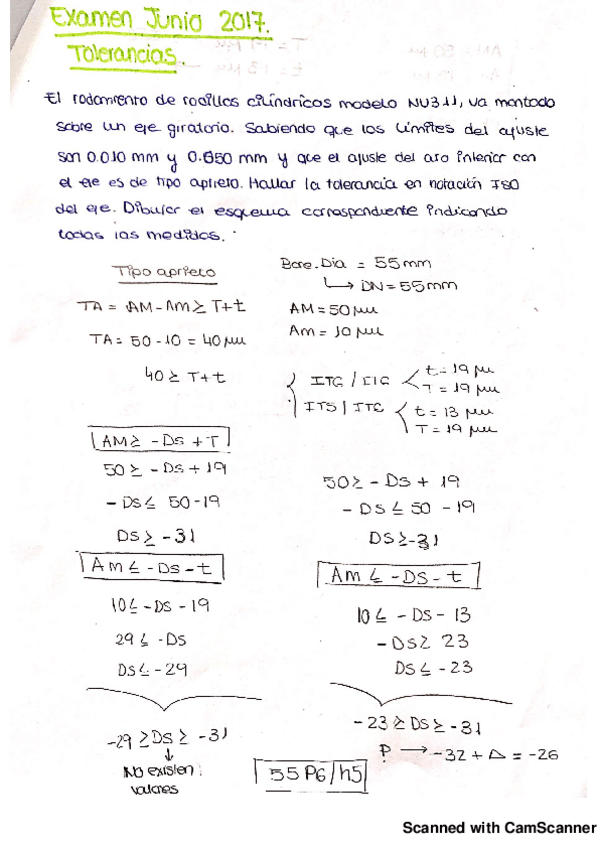 Examen Junio 2017.
Tolerancias.
El rodamiento de rodillos cilíndricos modelo NU311, va montado
sobre un eje giratorio. Sabiendo que los límites del ajuste
son 0.010 mm y 0.050 mm y que el ajuste del aro interior con
el eje es de tipo aprieto. Hallar la tolerancia en notación ISO
del eje. Dibujar el esquema correspondiente indicando
todas las medidas.
Tipo aprieto
TA = AM-Am ≥ T+t
TA = 50-10 = 40 μm
40 ≥ T+t
Bore.Dia = 55mm
↳ DN=55mm
AM=50μm
Am=10μm
IT6 / IT6 t=19 μm
T=19 μm
IT5 / IT6 t=13 μm
T=19 μm
AM ≥ -Ds+T
50 ≥ -Ds+19
-Ds ≤ 50-19
Ds ≥ -31
Am ≤ -Ds-t
10 ≤ -Ds-19
29 ≤ -Ds
Ds ≤ -29
-29 ≥ Ds ≥ -31
↓
No existen
valores
50 ≥ -Ds + 19
-Ds ≤ 50-19
Ds ≥ -31
Am ≤ -Ds-t
10 ≤ -Ds-13
-Ds ≥ 23
Ds ≤ -23
-23 ≥ Ds ≥ -31
P → -32+Δ = -26
55 P6/h5
Scanned with CamScanner